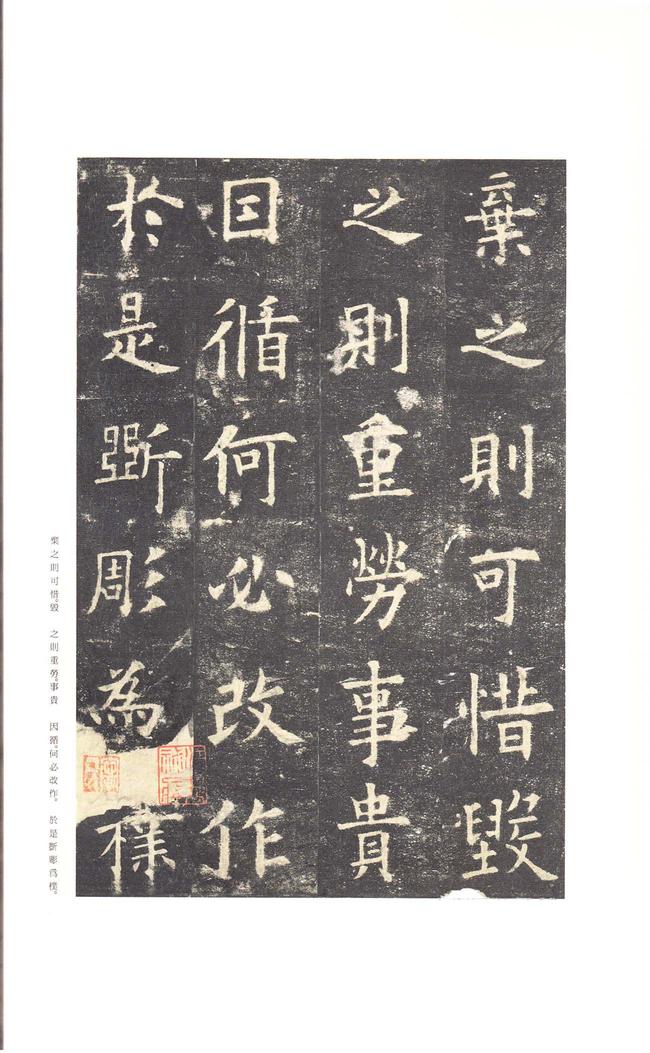 棄之則可惜毀
之則重勞事貴
因循何必改作
於是斲彫為樸
棄之則可惜。毀 之則重勞。事貴 因循。何必改作。 於是斲彫爲樸。